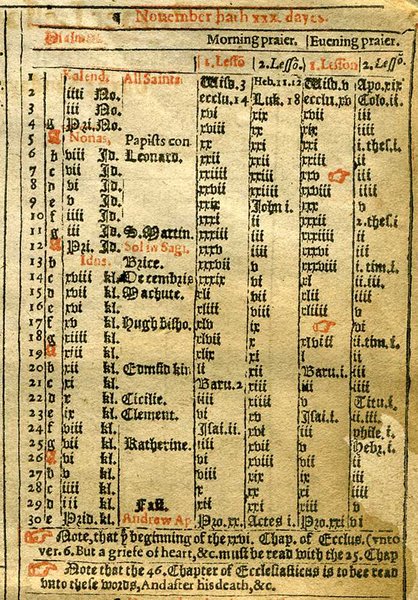 Nouember hath xxx. dayes.
Psalmes Morning praier. Euening praier.
1. Lessō 2. Lessō. 1. Lesson 2. Lessō.
1 Kalend. All Saints Wisd. 3 Heb.11.12 Wisd. v Apo.xix
2 iiii No. ecclu.14 Luk. 18 ecclu.xv Colo.ii.
3 iii No. xvi xix xvii iii
4 g Pri.No. xviii xx xix iiii
5 A Nonas, Papists con xx xxi xxi i.thes.i
6 b viii Id. Leonard. xxii xxii xxiii ii
7 c vii Id. xxiiii xxiii xxv iii
8 d vi Id. xxvii xxiiii xxviii iiii
9 e v Id. xxix John i. xxx v
10 f iiii Id. xxxi ii xxxii 2.thes.i
11 g iii Id. S.Martin. xxxiii iii xxxiiii ii
12 A Pri. Id. Sol in Sagi. xxxv iiii xxxvi iii
13 b Idus. Brice. xxxvii v xxxviii i.tim.i
14 c xviii kl. Decembris xxxix vi xl ii.iii.
15 d xvii kl. Machute. xli vii xlii iiii
16 e xvi kl. xliii viii xliiii v
17 f xv kl. Hugh bisho. xlv ix vi
18 g xiiii kl. xlvii x xlviii ii.tim.i.
19 A xiii kl. xlix xi l ii
20 b xii kl. Edmūd kin li xii Baru.i. iii
21 c xi kl. Baru.2 xiii iii iiii
22 d x kl. Cicilie. iiii xiiii v Titu.i
23 e ix kl. Clement. vi xv Isai.i ii.iii.
24 f viii kl. Isai.ii xvi iii phile.i
25 g vii kl. Katherine iiii xvii v Hebr.i
26 A vi kl. vi xviii vii ii
27 b v kl. viii xix ix iii
28 c iiii kl. x xx xi iiii
29 d iii kl. Fast. xii xxi xiii v
30 e Prid.kl. Andrew Ap. Pro.xx. Actes i. Pro.xxi vi
Note, that yͤ beginning of the xxvi. Chap. of Ecclus. (vnto
ver. 6. But a griefe of heart, &c. must be read with the 25. Chap
Note that the 46. Chapter of Ecclesiasticus is to bee read
vnto these words, And after his death, &c.